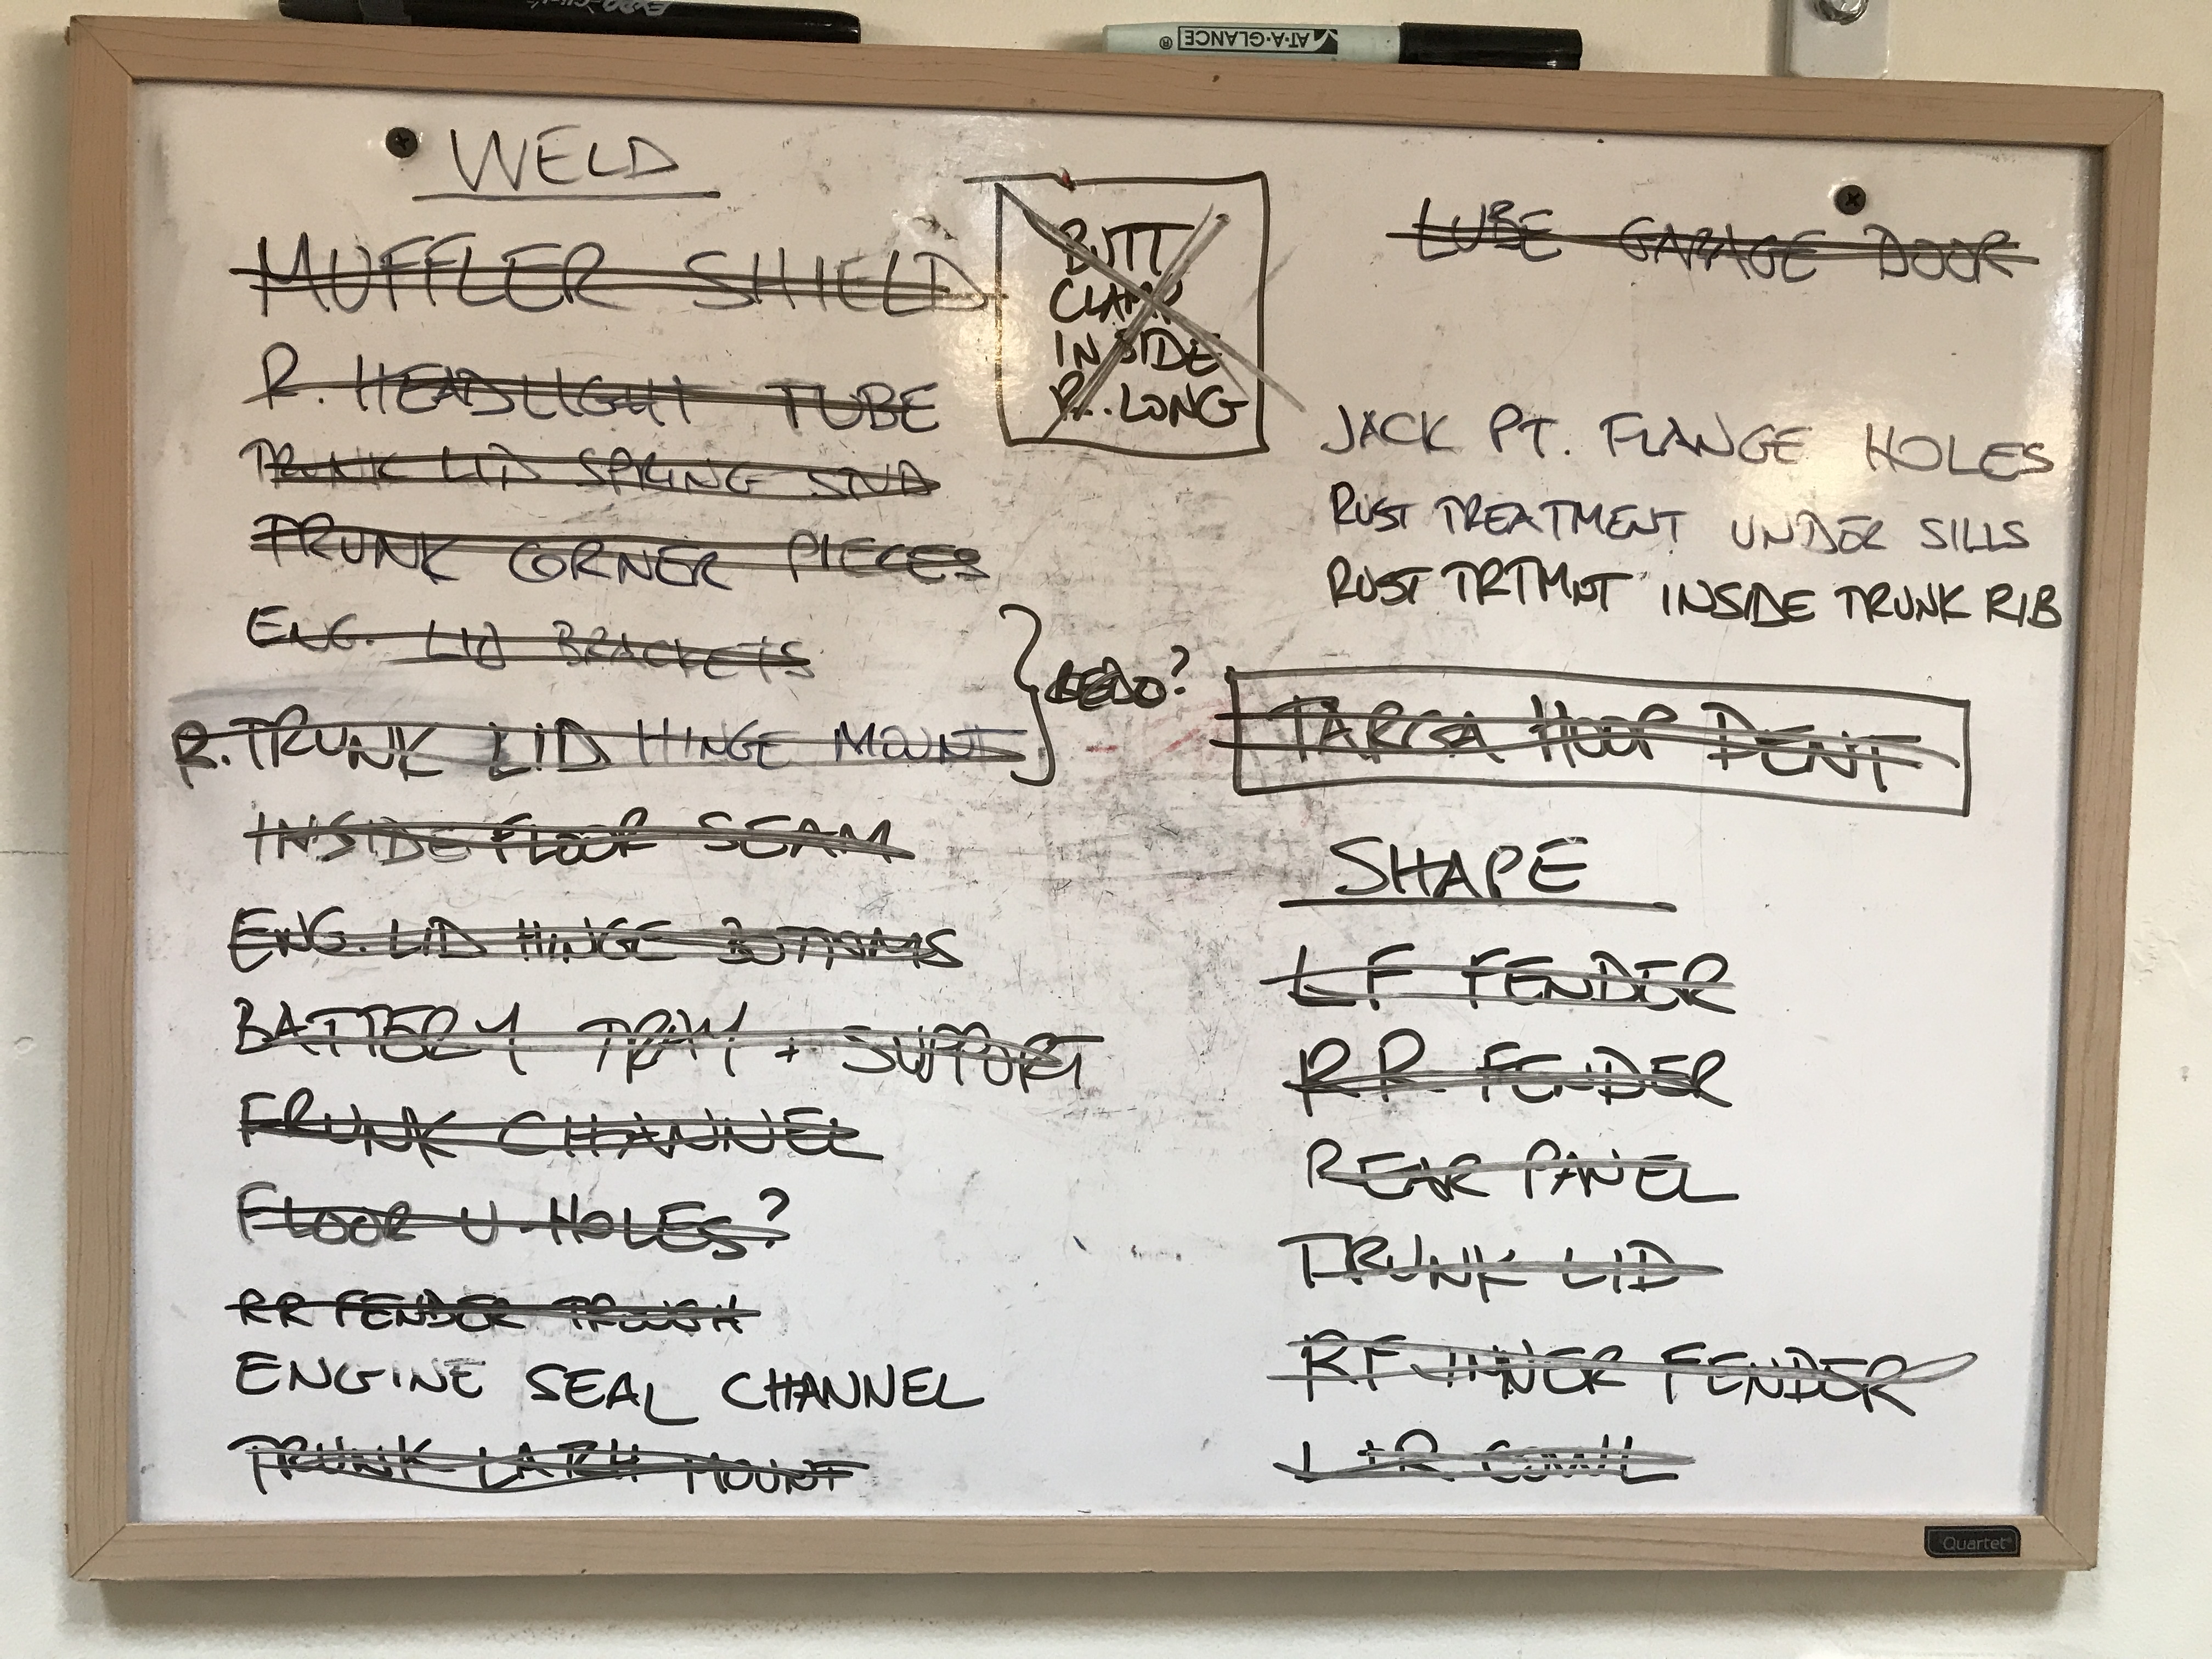 EXPO
AT-A-GLANCE®
WELD
MUFFLER SHIELD
R. HEADLIGHT TUBE
TRUNK LID SPRING STUD
TRUNK CORNER PIECES
ENG. LID BRACKETS
R. TRUNK LID HINGE MOUNT
REDO?
INSIDE FLOOR SEAM
ENG. LID HINGE BOTTOMS
BATTERY TRAY + SUPPORT
FRUNK CHANNEL
FLOOR U-HOLES?
RR FENDER TROUGH
ENGINE SEAL CHANNEL
TRUNK LATCH MOUNT
BUTT
CLAMP
INSIDE
R. LONG
LUBE GARAGE DOOR
JACK PT. FLANGE HOLES
RUST TREATMENT UNDER SILLS
RUST TRTMNT INSIDE TRUNK RIB
TARGA HOOP DENT
SHAPE
LF FENDER
R.R. FENDER
REAR PANEL
TRUNK LID
RF INNER FENDER
L+R COWL
Quartet